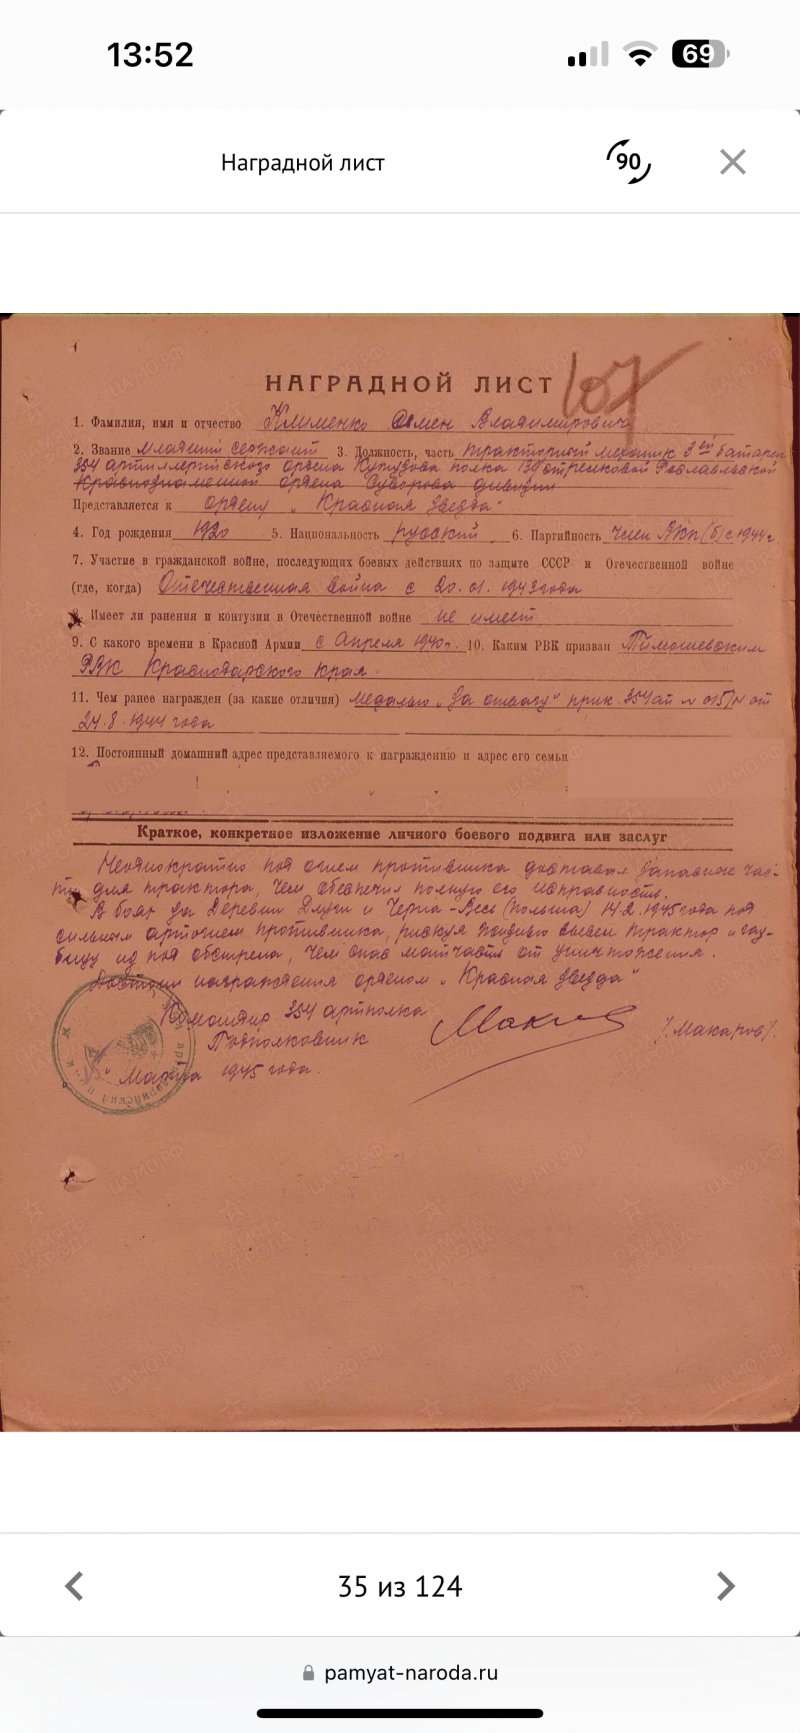 13:52
69
Наградной лист
90
НАГРАДНОЙ ЛИСТ
107
1. Фамилия, имя и отчество Клименко Семен Владимирович
2. Звание младший сержант 3. Должность, часть тракторный механик 3ей батареи
354 артиллерийского ордена Кутузова полка 139 стрелковой Рославльской
Краснознаменной ордена Суворова дивизии
Представляется к ордену „Красная звезда"
4. Год рождения 1920 5. Национальность русский 6. Партийность член ВКП(б) с 1944г
7. Участие в гражданской войне, последующих боевых действиях по защите СССР и Отечественной войне
(где, когда) Отечественная война с 20.01.1943года
8. Имеет ли ранения и контузии в Отечественной войне не имеет
9. С какого времени в Красной Армии с Апреля 1940г. 10. Каким РВК призван Тимошевским
РВК Краснодарского края.
11. Чем ранее награжден (за какие отличия) медалью „За отвагу" прик. 354ап № 015/н от
24.8.1944 года
12. Постоянный домашний адрес представляемого к награждению и адрес его семьи
Краткое, конкретное изложение личного боевого подвига или заслуг
Неоднократно под огнем противника доставал запасные час-
ти для трактора, чем обеспечил полную его исправность.
В боях за деревни Длуги и Черна-Весь (Польша) 14.2.1945 года под
сильным артогнем противника, рискуя жизнью вывел трактор и гау-
бицу из под обстрела, чем спас матчасть от уничтожения.
Достоин награждения орденом „Красная звезда"
Командир 354 артполка
Подполковник /Макаров/.
" Марта 1945 года.
35 из 124
pamyat-naroda.ru